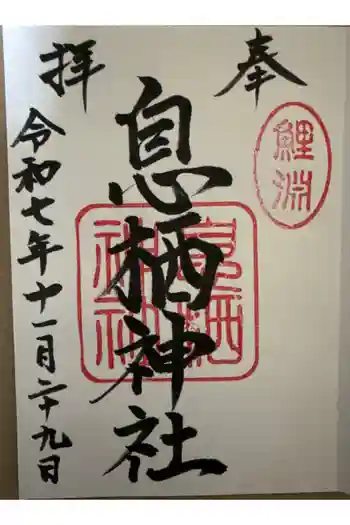 奉
鯉淵
息栖神社
息栖神社
拝
令和七年十一月二十九日